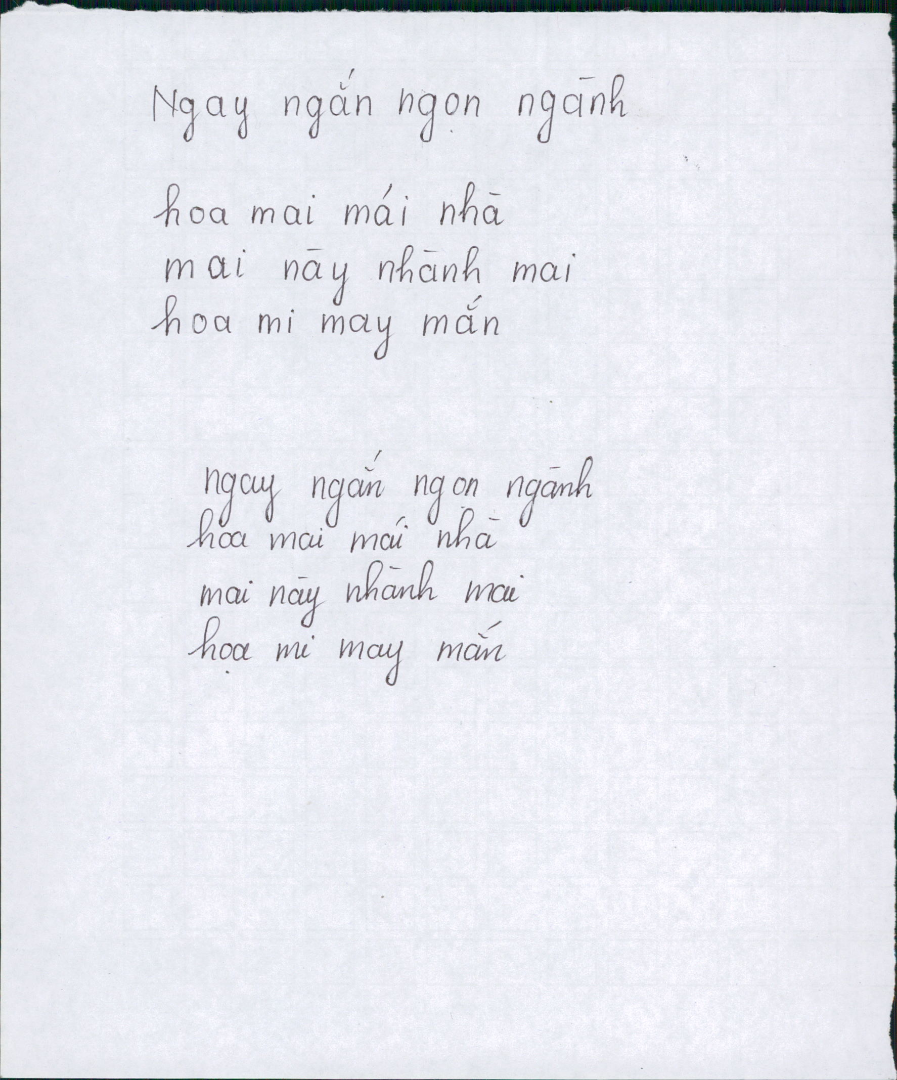 Ngay ngắn ngọn ngành
hoa mai mái nhà
mai này nhành mai
hoa mi may mắn
ngay ngắn ngọn ngành
hoa mai mái nhà
mai này nhành mai
họa mi may mắn